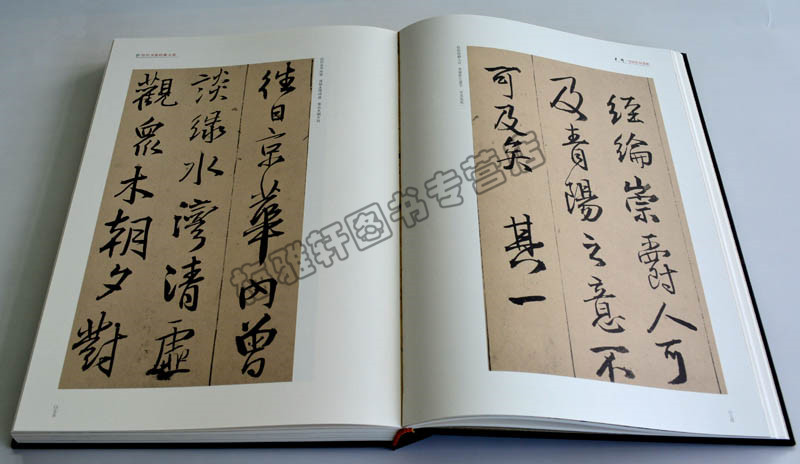 經綸崇爵人可
及青陽之意不
可及矣 其一
往日京華內曾
談綠水灣清虛
觀眾木朝夕對
雅轩图书专营店